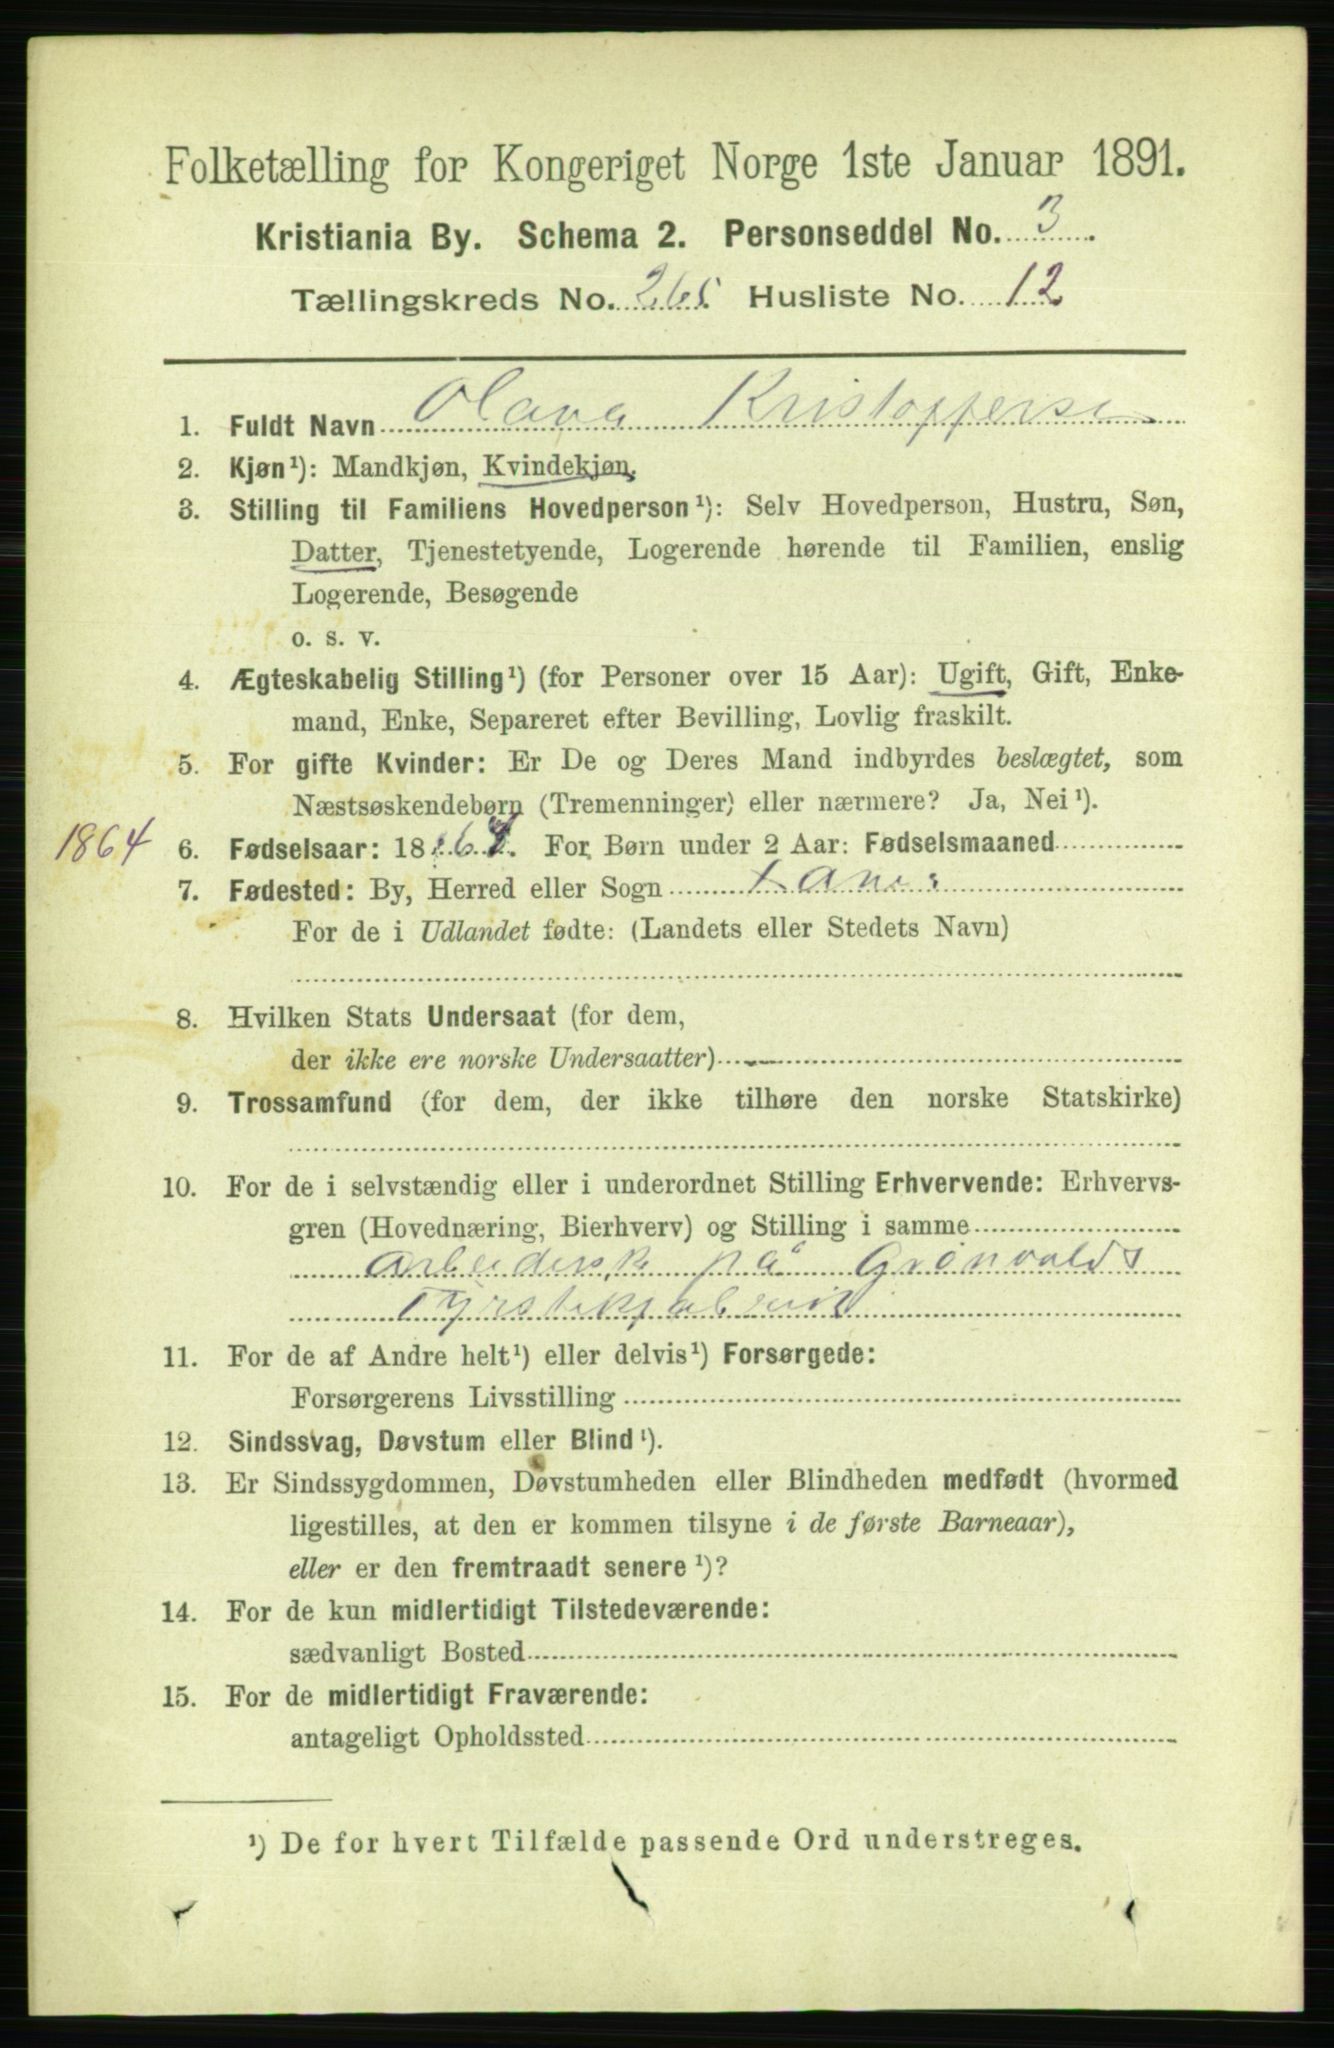 Folketælling for Kongeriget Norge 1ste Januar 1891.
Kristiania By. Schema 2. Personseddel No. 3.
Tællingskreds No. 265. Husliste No. 12
1. Fuldt Navn Olava Kristoffersen
2. Kjøn¹): Mandkjøn, Kvindekjøn.
3. Stilling til Familiens Hovedperson¹): Selv Hovedperson, Hustru, Søn,
Datter, Tjenestetyende, Logerende hørende til Familien, enslig
Logerende, Besøgende
o. s. v.
4. Ægteskabelig Stilling¹) (for Personer over 15 Aar): Ugift, Gift, Enke-
mand, Enke, Separeret efter Bevilling, Lovlig fraskilt.
5. For gifte Kvinder: Er De og Deres Mand indbyrdes beslægtet, som
Næstsøskendebørn (Tremenninger) eller nærmere? Ja, Nei¹).
1864 6. Fødselsaar: 1864. For Børn under 2 Aar: Fødselsmaaned
7. Fødested: By, Herred eller Sogn
For de i Udlandet fødte: (Landets eller Stedets Navn)
8. Hvilken Stats Undersaat (for dem,
der ikke ere norske Undersaatter)
9. Trossamfund (for dem, der ikke tilhøre den norske Statskirke)
10. For de i selvstændig eller i underordnet Stilling Erhvervende: Erhvervs-
gren (Hovednæring, Bierhverv) og Stilling i samme
Arbeidersk på Grønvolds
Fyrstikfabrik
11. For de af Andre helt¹) eller delvis¹) Forsørgede:
Forsørgerens Livsstilling
12. Sindssvag, Døvstum eller Blind¹).
13. Er Sindssygdommen, Døvstumheden eller Blindheden medfødt (hvormed
ligestilles, at den er kommen tilsyne i de første Barneaar),
eller er den fremtraadt senere¹)?
14. For de kun midlertidigt Tilstedeværende:
sædvanligt Bosted
15. For de midlertidigt Fraværende:
antageligt Opholdssted
¹) De for hvert Tilfælde passende Ord understreges.